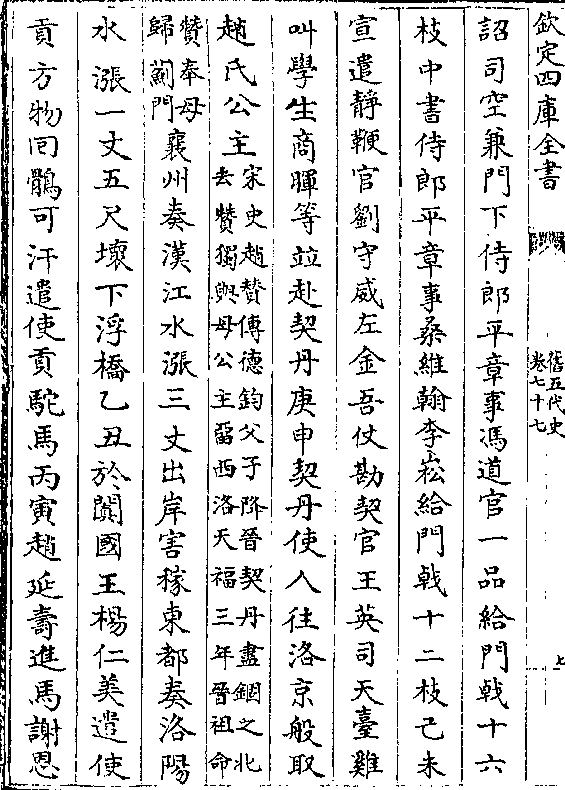 欽定四庫全書
舊五代史
卷七十七
七
詔司空兼門下侍郎平章事馮道官一品給門戟十六
枝中書侍郎平章事桑維翰李崧給門戟十二枝己未
宣遣靜鞭官劉守威左金吾仗勘契官王英司天臺雞
叫學生商暉等竝赴契丹庚申契丹使人往洛京般取
趙氏公主宋史趙贊傳德鈞父子降晉契丹盡錮之北
去贊獨與母公主畱西洛天福三年晉祖命
贊奉母
歸薊門襄州奏漢江水漲三丈出岸害稼東都奏洛陽
水漲一丈五尺壞下浮橋乙丑於闐國王楊仁美遣使
貢方物囘鶻可汗遣使貢駝馬丙寅趙延壽進馬謝恩